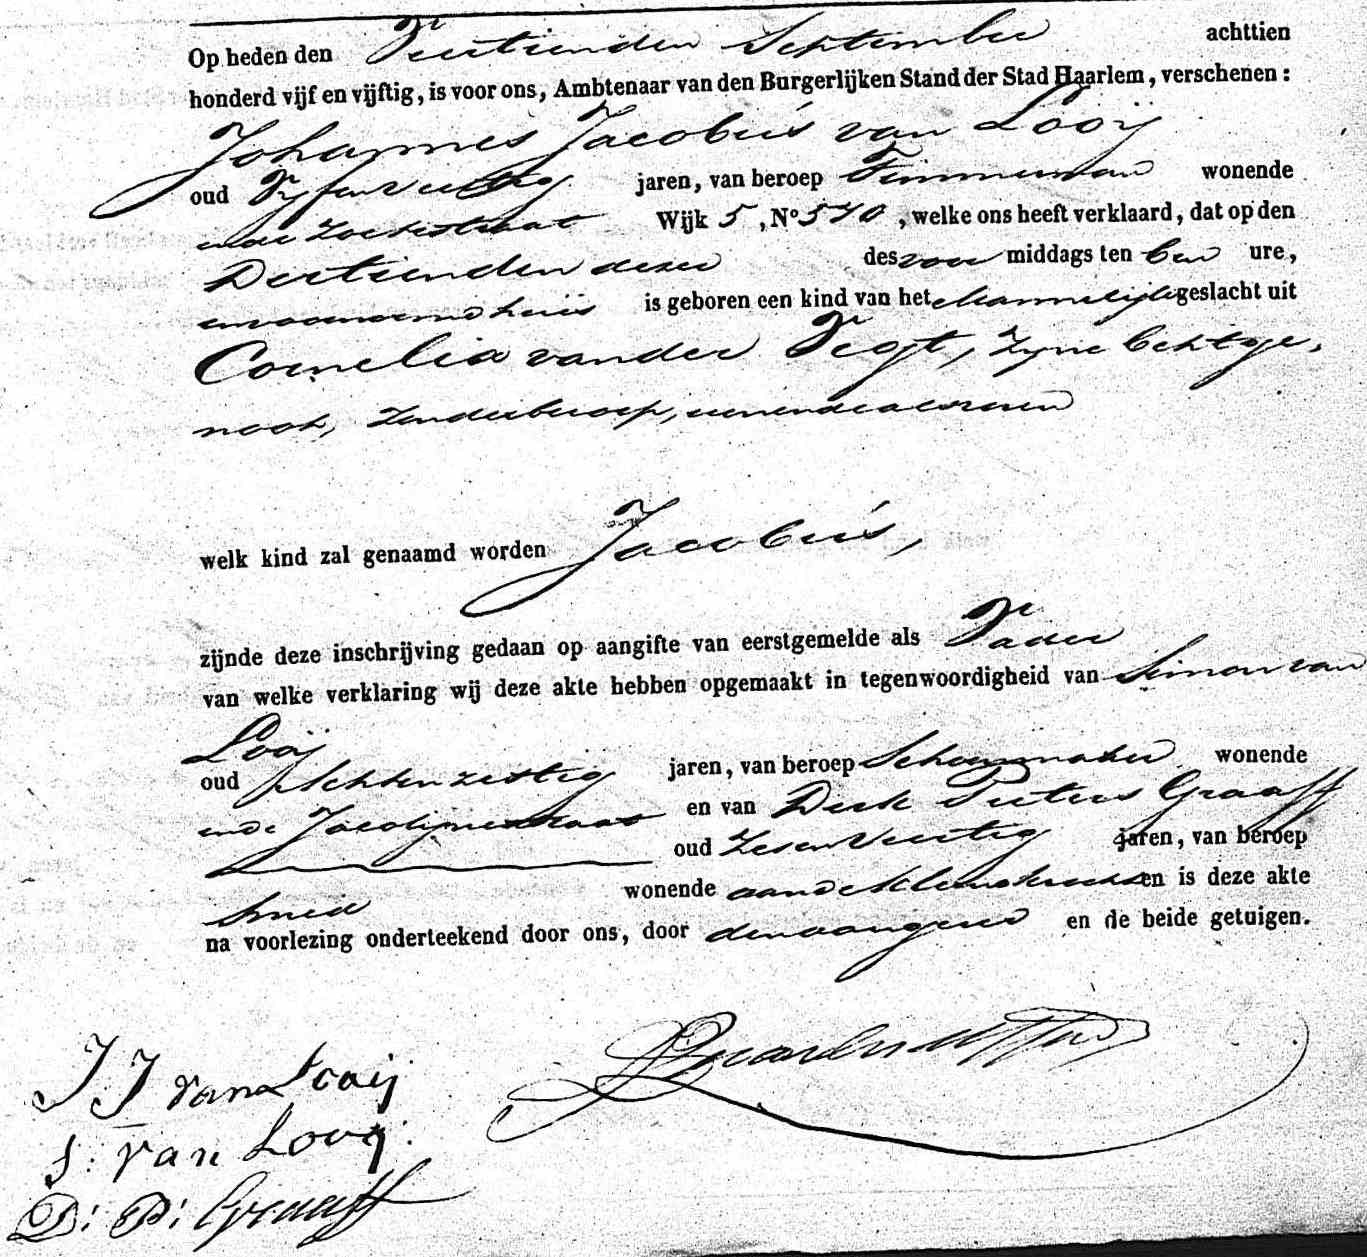 Op heden den Veertienden September achttien
honderd vijf en vijftig, is voor ons, Ambtenaar van den Burgerlijken Stand der Stad Haarlem, verschenen:
Johannes Jacobus van Looij
oud Vyfenveertig jaren, van beroep Timmerman wonende
in de Zoetestraat Wijk 5, No 570, welke ons heeft verklaard, dat op den
Dertienden dezer des voor middags ten Een ure,
in voornoemd huis is geboren een kind van het Mannelijk geslacht uit
Cornelia van der Vegt, zyne Echtge-
noot, zonder beroep, mede alhier
welk kind zal genaamd worden Jacobus,
zijnde deze inschrijving gedaan op aangifte van eerstgemelde als Vader
van welke verklaring wij deze akte hebben opgemaakt in tegenwoordigheid van Simon van
Looij
oud Achtenzestig jaren, van beroep Schoenmaker wonende
in de Jacobijnestraat en van Dirk Pieters Graaff
oud Zesenveertig jaren, van beroep
Smid wonende aan de en is deze akte
na voorlezing onderteekend door ons, door den aangever en de beide getuigen.
J J van Looij
S: van Looij
D: P: Graaff